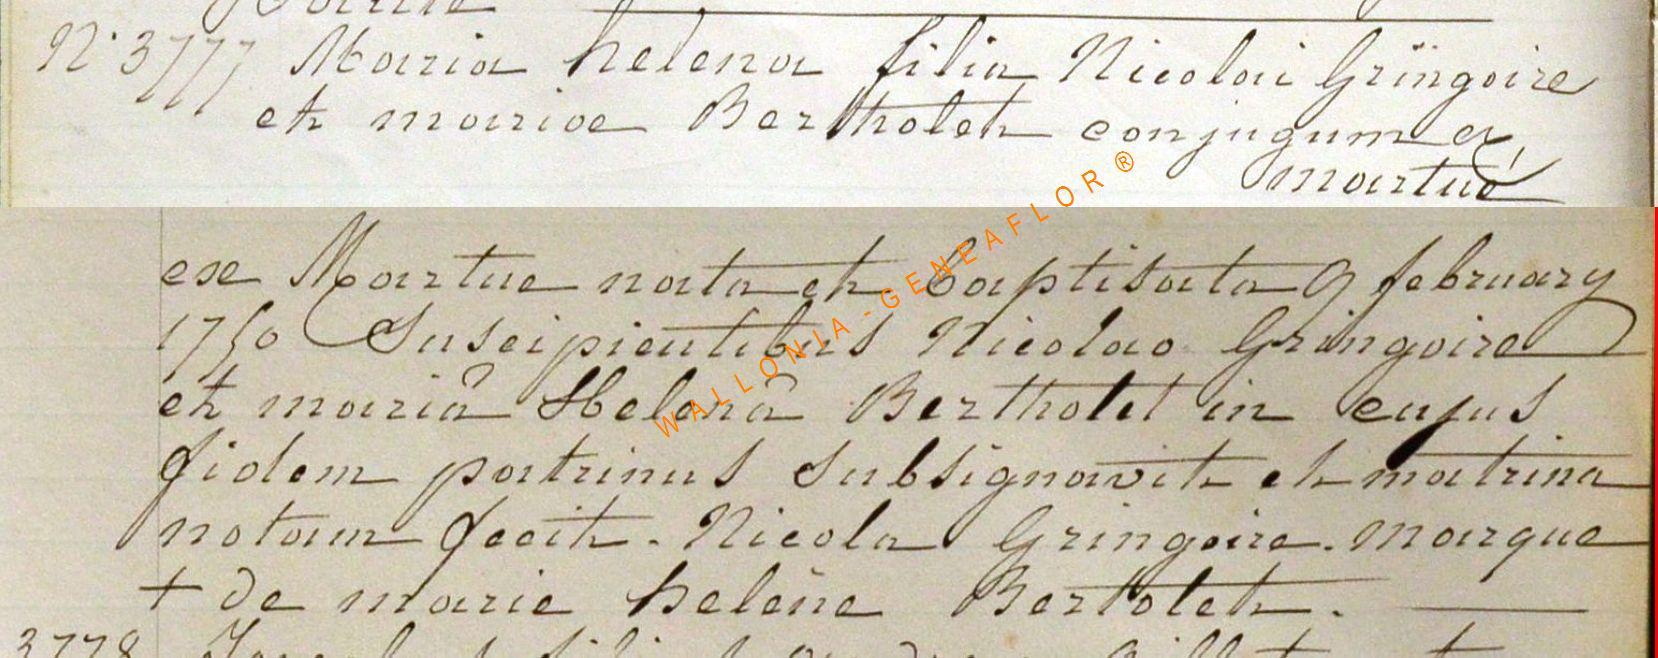 N° 3777 Maria helena filia Nicolai Gringoire
et mariae Bertholet conjugum ex
martué
exe Martue nata et baptisata 9 february
1750 Suscipientibus Nicolao Gringoire
et mariâ Helenâ Bertholet in cujus
fidem patrinus subsignavit et matrina
notam fecit. Nicola Gringoire. marque
+ de marie helène Bertolet.
3778
WALLONIA-GENEAFLOR®